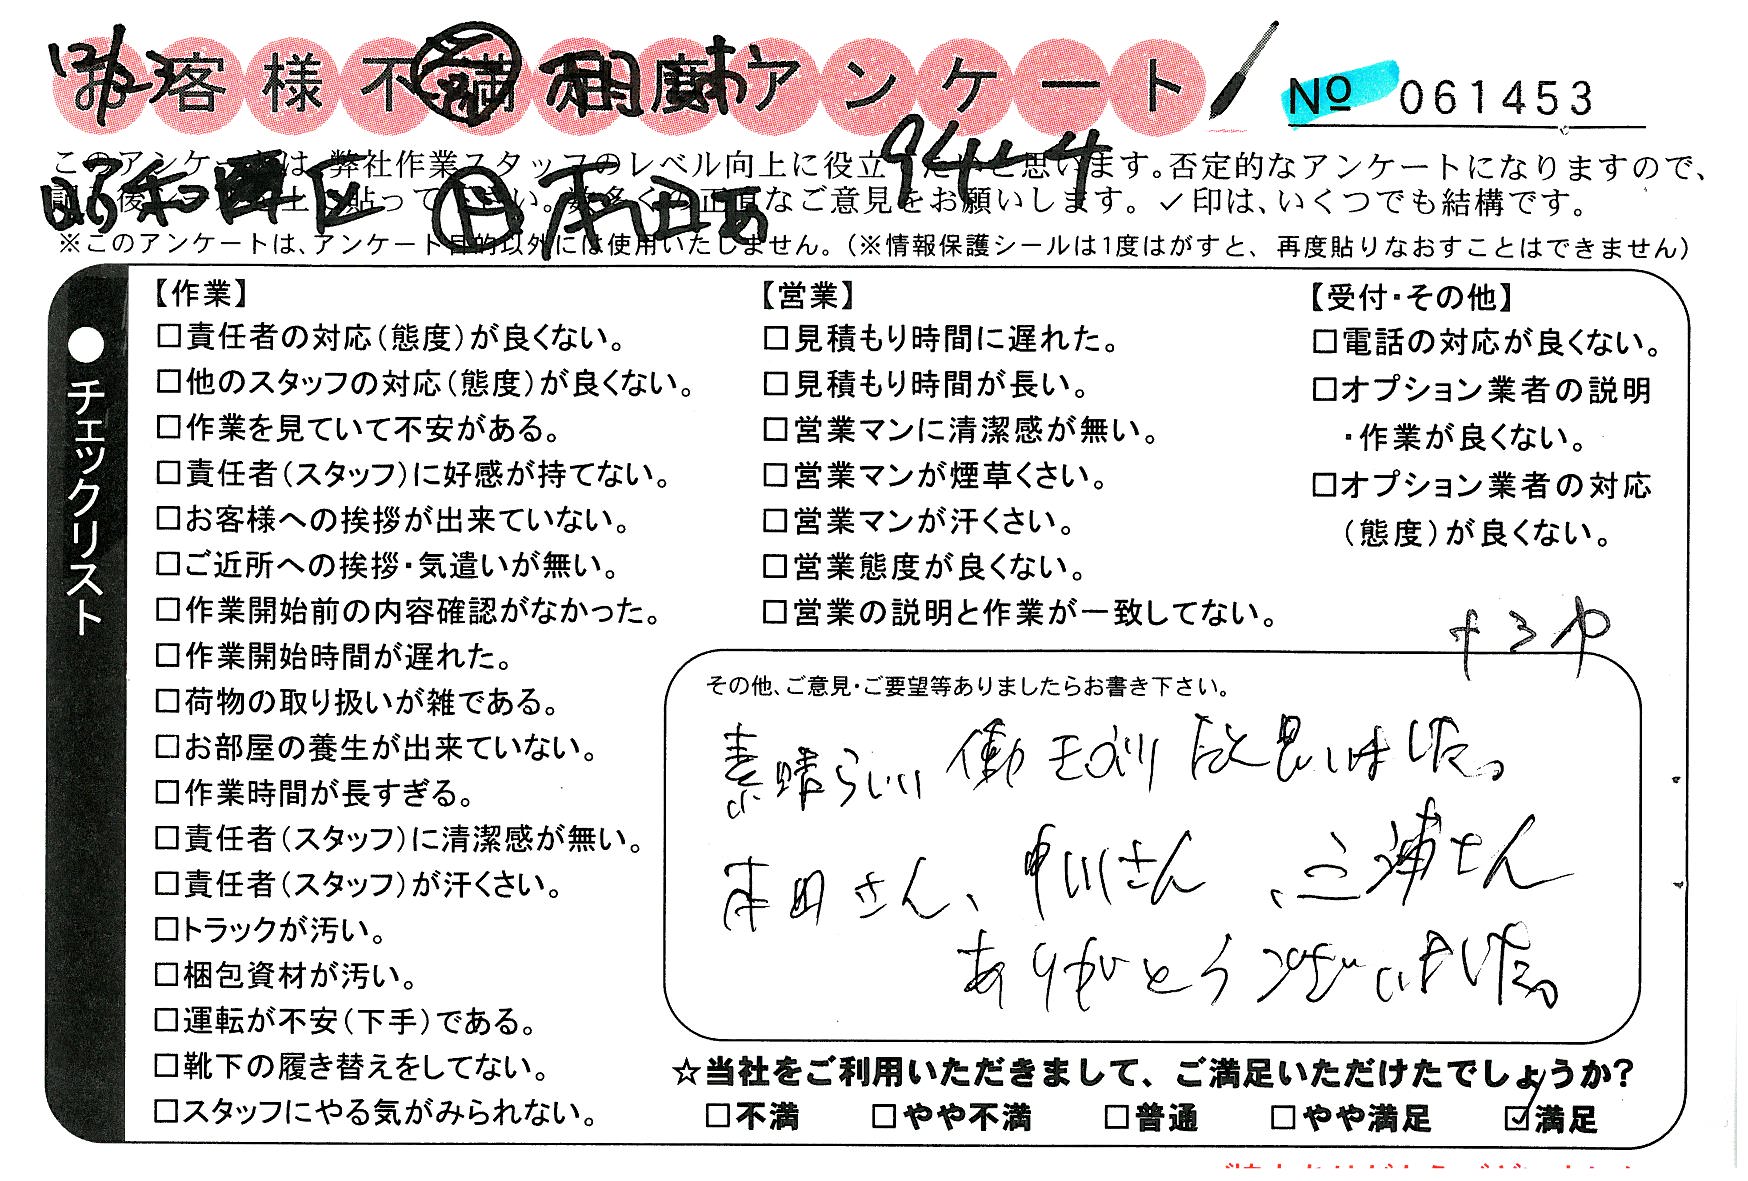 お客様不満足度アンケート
No 061453
12/23
9444
このアンケートは、弊社作業スタッフのレベル向上に役立てたいと思います。否定的なアンケートになりますので、
って下さい。数多くの正直なご意見をお願いします。✓印は、いくつでも結構です。
昭和
※このアンケートは、アンケート目的以外には使用いたしません。(※情報保護シールは1度はがすと、再度貼りなおすことはできません)
●チェックリスト
【作業】
□責任者の対応(態度)が良くない。
□他のスタッフの対応(態度)が良くない。
□作業を見ていて不安がある。
□責任者(スタッフ)に好感が持てない。
□お客様への挨拶が出来ていない。
□ご近所への挨拶・気遣いが無い。
□作業開始前の内容確認がなかった。
□作業開始時間が遅れた。
□荷物の取り扱いが雑である。
□お部屋の養生が出来ていない。
□作業時間が長すぎる。
□責任者(スタッフ)に清潔感が無い。
□責任者(スタッフ)が汗くさい。
□トラックが汚い。
□梱包資材が汚い。
□運転が不安(下手)である。
□靴下の履き替えをしてない。
□スタッフにやる気がみられない。
【営業】
□見積もり時間に遅れた。
□見積もり時間が長い。
□営業マンに清潔感が無い。
□営業マンが煙草くさい。
□営業マンが汗くさい。
□営業態度が良くない。
□営業の説明と作業が一致してない。
【受付・その他】
□電話の対応が良くない。
□オプション業者の説明
・作業が良くない。
□オプション業者の対応
(態度)が良くない。
その他、ご意見・ご要望等ありましたらお書き下さい。
素晴らしい働きぶりだと思いました。
本田さん、中川さん、三浦さん
ありがとうございました。
☆当社をご利用いただきまして、ご満足いただけたでしょうか?
□不満 □やや不満 □普通 □やや満足 ☑満足